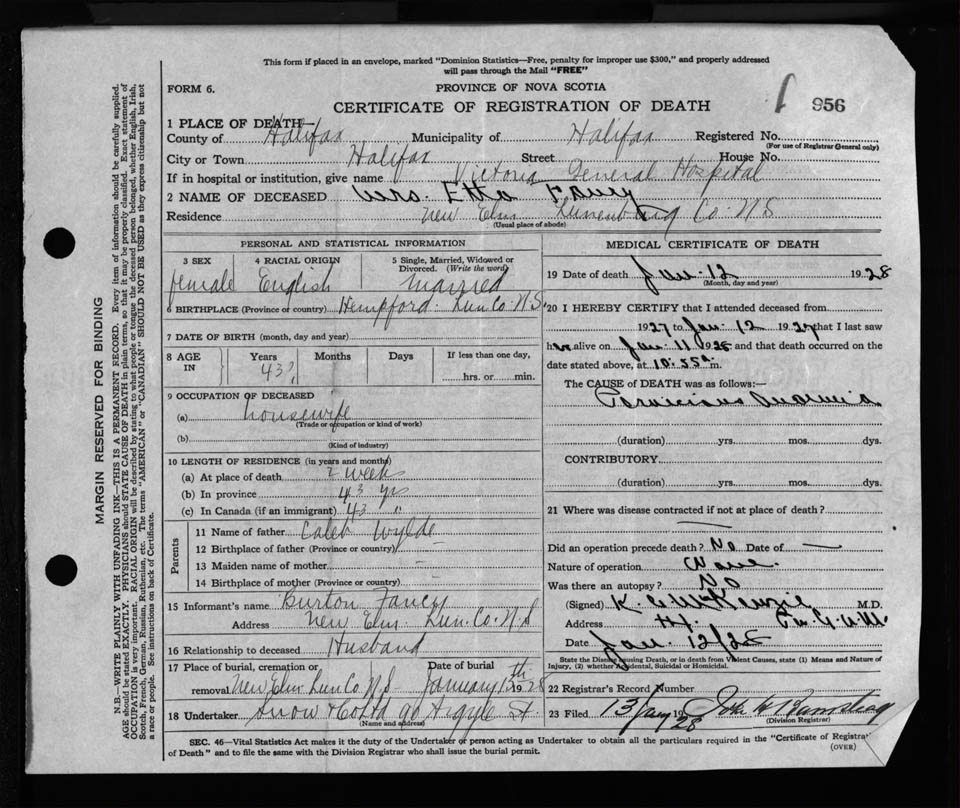 This form if placed in an envelope, marked "Dominion Statistics—Free, penalty for improper use $300," and properly addressed
will pass through the Mail "FREE"
FORM 6. PROVINCE OF NOVA SCOTIA
CERTIFICATE OF REGISTRATION OF DEATH 956
1 PLACE OF DEATH—
County of Halifax Municipality of Halifax Registered No.
(For use of Registrar General only)
City or Town Halifax Street House No.
If in hospital or institution, give name Victoria General Hospital
2 NAME OF DECEASED Mrs. Etta Fancy
Residence New Elm Lunenburg Co. N S
(Usual place of abode)
PERSONAL AND STATISTICAL INFORMATION
3 SEX 4 RACIAL ORIGIN 5 Single, Married, Widowed or Divorced. (Write the word)
female English Married
6 BIRTHPLACE (Province or country) Hempford. Lun. Co. N. S.
7 DATE OF BIRTH (month, day and year)
8 AGE IN Years Months Days If less than one day,
43 hrs. or min.
9 OCCUPATION OF DECEASED
(a) housewife
(Trade or occupation or kind of work)
(b)
(Kind of industry)
10 LENGTH OF RESIDENCE (in years and months)
(a) At place of death 2 week
(b) In province 43 yrs
(c) In Canada (if an immigrant) 43 "
Parents
11 Name of father Caleb Wylde
12 Birthplace of father (Province or country) —
13 Maiden name of mother —
14 Birthplace of mother (Province or country)
15 Informant's name Burton Fancy
Address New Elm Lun. Co. N. S
16 Relationship to deceased Husband
17 Place of burial, cremation or Date of burial
removal New Elm Lun Co N S January 15th 1928
18 Undertaker Snow & Co Ltd 90 Argyle St.
(Name and address)
MEDICAL CERTIFICATE OF DEATH
19 Date of death Jan. 12 1928
(Month, day and year)
20 I HEREBY CERTIFY that I attended deceased from
1927 to Jan. 12 1927 that I last saw
her alive on Jan. 11 1928 and that death occurred on the
date stated above, at 10.55 a. m.
The CAUSE of DEATH was as follows:—
Pernicious Anaemia
(duration) yrs. mos. dys.
CONTRIBUTORY
(duration) yrs. mos. dys.
21 Where was disease contracted if not at place of death?
—
Did an operation precede death? No Date of —
Nature of operation None.
Was there an autopsy? No
(Signed) K. E. McKenzie M.D.
Address Hx.
Date Jan. 12/28
State the Disease causing Death, or in death from Violent Causes, state (1) Means and Nature of
Injury, (2) whether Accidental, Suicidal or Homicidal.
22 Registrar's Record Number
23 Filed 13 Jany 1928
(Division Registrar)
SEC. 46—Vital Statistics Act makes it the duty of the Undertaker or person acting as Undertaker to obtain all the particulars required in the "Certificate of Registrat
of Death" and to file the same with the Division Registrar who shall issue the burial permit.
(OVER)
MARGIN RESERVED FOR BINDING
N.B.—WRITE PLAINLY WITH UNFADING INK—THIS IS A PERMANENT RECORD. Every item of information should be carefully supplied.
AGE should be stated EXACTLY. PHYSICIANS should STATE CAUSE OF DEATH in plain terms, so that it may be properly classified. Exact statement of
OCCUPATION is very important. RACIAL ORIGIN will be described by stating to what people or tongue the deceased person belonged, whether English, Irish,
Scotch, French, German, Russian, Ruthenian, etc. The terms "AMERICAN" or "CANADIAN" SHOULD NOT BE USED as they express citizenship but not
a race or people. See instructions on back of Certificate.